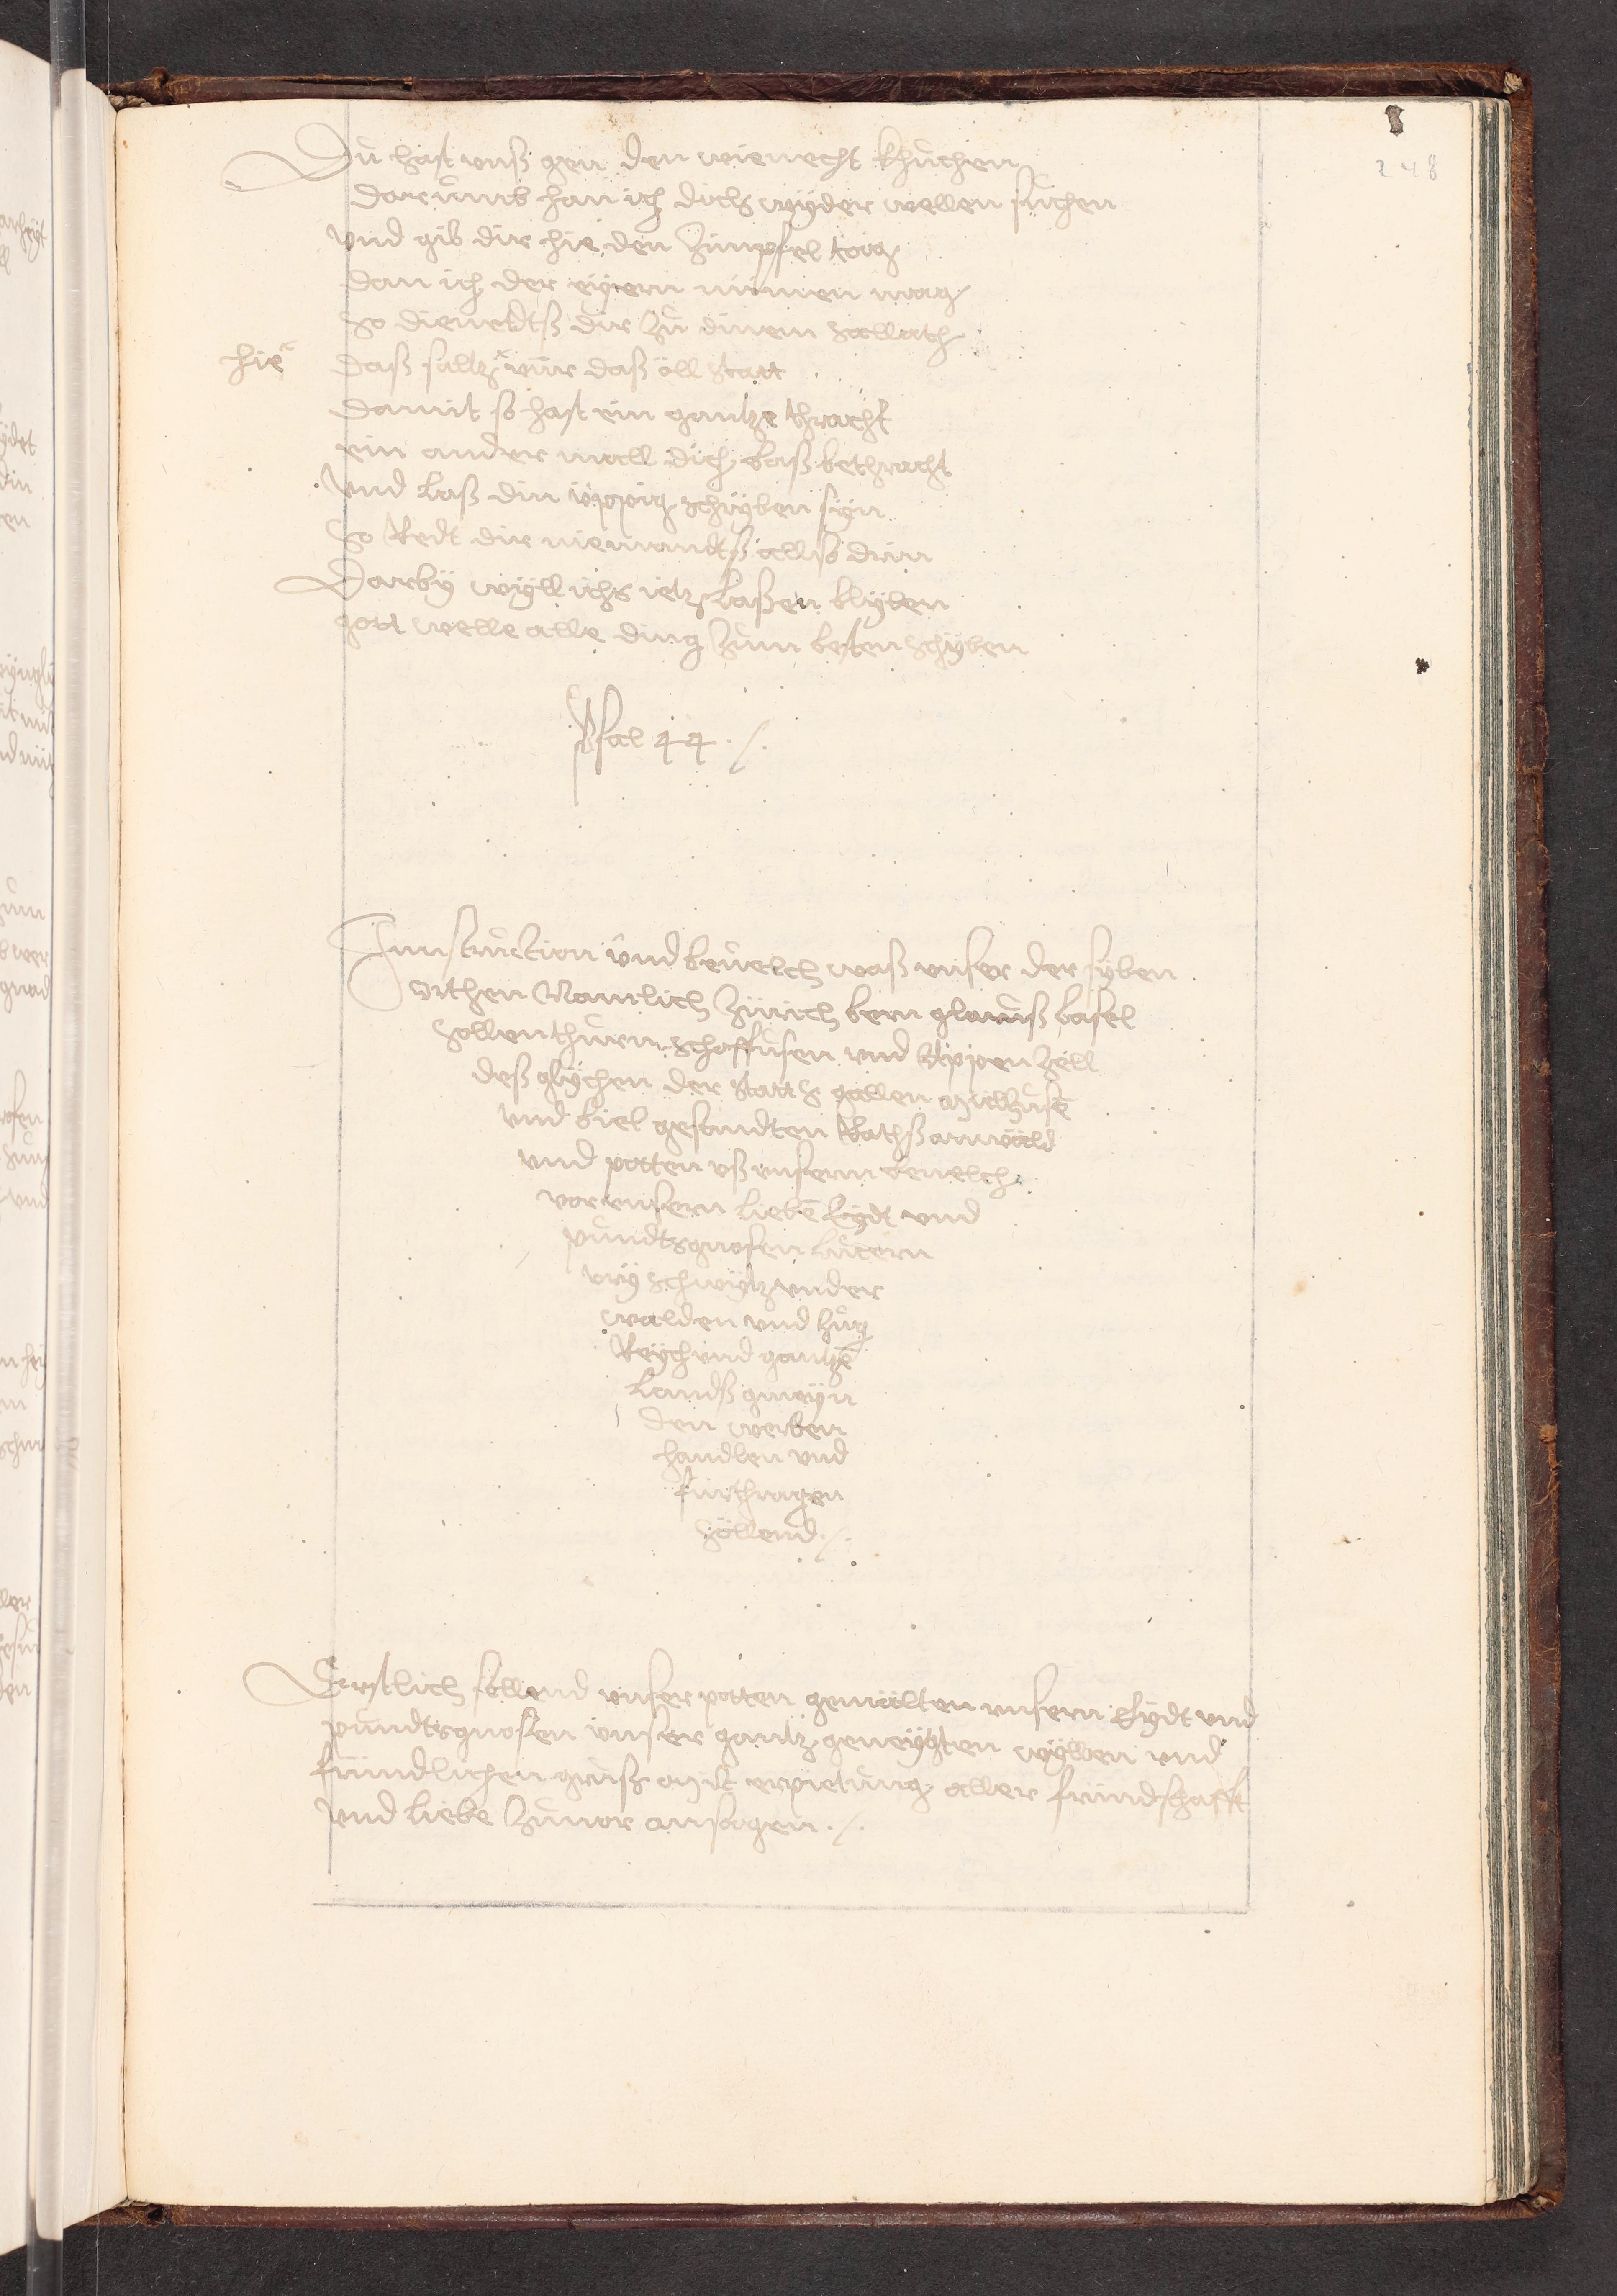 248
Du hast unß gen den wienecht khuchen
darumb han ich dichs wyder wellen suchen
und gib dir hie den Zimpfel
dan ich der eyern nimen mag
So dienedtß dir Zu dinem Sallath
hie daß saltz nür daß öll statt
damit so hast ein gantze thracht
ein ander mall dich baß bethracht
und laß din üppig schryben syn
So Redt dir niemandtß allso drin
Darby wyll ichs ietz laßen blyben
gott welle alle ding Zum besten schyben
Psal 44 ./.
Innstruction und beuelch waß unser der syben
orthen Namlich Zürich bern glaruß basel
Sollenthurn Schaffusen und Appenzell
deß glychen der statt S gallen Müllhusē
und biel gesandten Rathß anwäld
und potten uß unserm beuelch
vor unsern lieben Eydt und
pundtsgnosen lucern
ury Schwytz under
walden und Zug
Reth und gantzē
landß gmeyn
den werben
handlen und
fürthragen
söllend ./.
Erstlich söllend unser potten gemälten unsern Eydt und
pundtsgnosen unser gantz geneygten wyllen und
fründlichen gruß mit erpietung aller fründschafft
und liebe Zuuor ansagen ./.